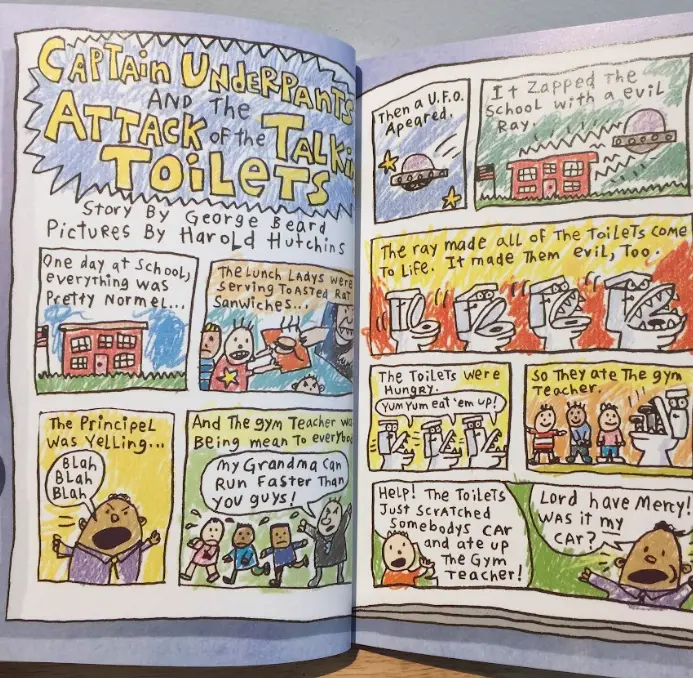 CAPTAIN UNDERPANTS
AND THE
ATTACK OF THE TALKIN
TOILETS
Story By George Beard
Pictures By Harold Hutchins
One day at School,
everything was
Pretty Normel...
The Lunch Ladys were
serving Toasted Rat
Sanwiches...
The Principel
was Yelling...
BLAH
BLAH
BLAH
And The gym Teacher was
Being mean To everybody
My Grandma Can
Run Faster Than
you guys!
Then a U.F.O.
Apeared.
It Zapped The
School with a evil
Ray.
The ray made all of The ToileTs come
To Life. It made Them evil, Too.
The ToileTs were
Hungry.
YUM YUM eaT 'em up!
So They ATe The gym
Teacher.
HELP! The ToileTs
JusT ScraTched
Somebodys CAR
and aTe up
The Gym
Teacher!
Lord have Mercy!
Was iT my
CAR?